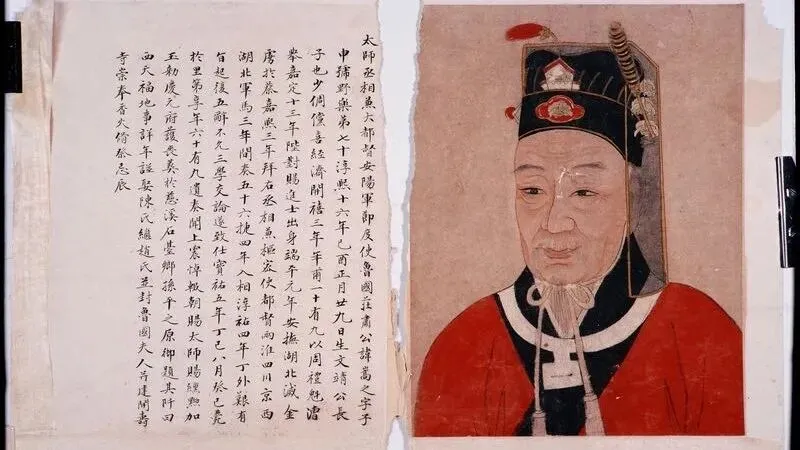 太師丞相兼大都督安陽軍節度使魯國莊肅公諱嵩之字子
申號野樂弟七十淳熙十六年己酉正月廿九日生文靖公長
子也少倜儻喜經濟開禧三年年甫一十有九以周禮魁漕
舉嘉定十三年陛對賜進士出身端平元年安撫湖北滅金
虜於蔡嘉熙三年拜右丞相兼樞密使都督兩淮四川京西
湖北軍馬三年間奏五十六捷四年入相淳祐四年丁外艱有
旨起復五辭不允三學交論遂致仕寶祐五年丁巳八月癸巳薨
於里第享年六十有九遺奏聞上震悼輟朝賜太師賜加
玉勅慶元府護喪葬於慈溪石臺鄉孫平之原御題其阡曰
西天福地事詳年譜娶陳氏繼趙氏並封魯國夫人并建開壽
寺崇奉香火脩祭忌辰